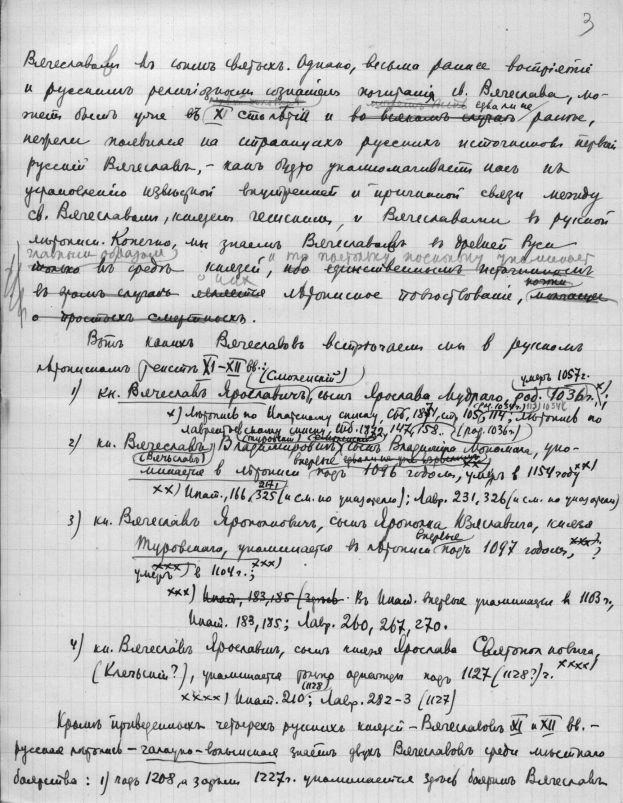 3
Вячеславами въ сонмъ святыхъ. Однако, весьма раннее воспріятіе
и русскимъ религіознымъ сознаніемъ почитанія св. Вячеслава, мо-
едва ли не
жетъ быть уже въ XI столѣтіи и во всякомъ случаѣ ранѣе,
нежели появился на страницахъ русскихъ источниковъ первый
русскій Вячеславъ, – какъ будто уполномачиваетъ насъ къ
установленію извѣстной внутренней и причинной связи между
св. Вячеславомъ, княземъ чешскимъ, и Вячеславами въ русской
лѣтописи. Конечно, мы знаемъ Вячеславовъ въ древней Руси
главнымъ образомъ и то постольку, поскольку упоминаетъ
только въ средѣ князей, ибо единственнымъ источникомъ
о нихъ
въ этомъ случаѣ является лѣтописное повѣствованіе, молчащее
почти
о простыхъ смертныхъ.
Вотъ какихъ Вячеславовъ встрѣчаемъ мы въ русскомъ
лѣтописномъ текстѣ XI–XII вв.:
(Смоленскій) умеръ 1057 г.
1) кн. Вячеславъ Ярославичъ, сынъ Ярослава Мудраго, род. 1036 г. x)
x) Лѣтопись по Ипатскому списку, Спб. 1871, стр. 105, 114; Лѣтопись по
Лаврентьевскому списку, Спб. 1872, 147, 158. (род. 1036 г.)
2) кн. Вячеславъ Владимировичъ, сынъ Владиміра Мономаха, упо-
(Вячьславъ) впервые
минается въ лѣтописи подъ 1096 годомъ, умеръ въ 1154 году xx)
xx) Ипат., 166, 325 (и см. по указателю); Лавр. 231, 326 (и см. по указателю)
3) кн. Вячеславъ Ярополковичъ, сынъ Ярополка Изяславича, князя
впервые
Туровскаго, упоминается въ лѣтописи подъ 1097 годомъ, xxx) ?
умеръ въ 1104 г.; xxx)
xxx) Ипат., 183, 185 (здѣсь Въ Ипат. впервые упоминается въ 1103 г.,
Ипат. 183, 185; Лавр. 260, 267, 270.
4) кн. Вячеславъ Ярославичъ, сынъ князя Ярослава Святополковича,
(Клечьскій?), упоминается только однажды подъ 1127 (1128?) г. xxxx)
xxxx) Ипат. 210 (1128); Лавр. 282-3 (1127)
Кромѣ приведенныхъ четырехъ русскихъ князей – Вячеславовъ XI и XII вв. –
русская лѣтопись – галицко-волынская знаетъ двухъ Вячеславовъ среди мѣстнаго
боярства: 1) подъ 1208, а затѣмъ 1227 г. упоминается здѣсь бояринъ Вячеславъ